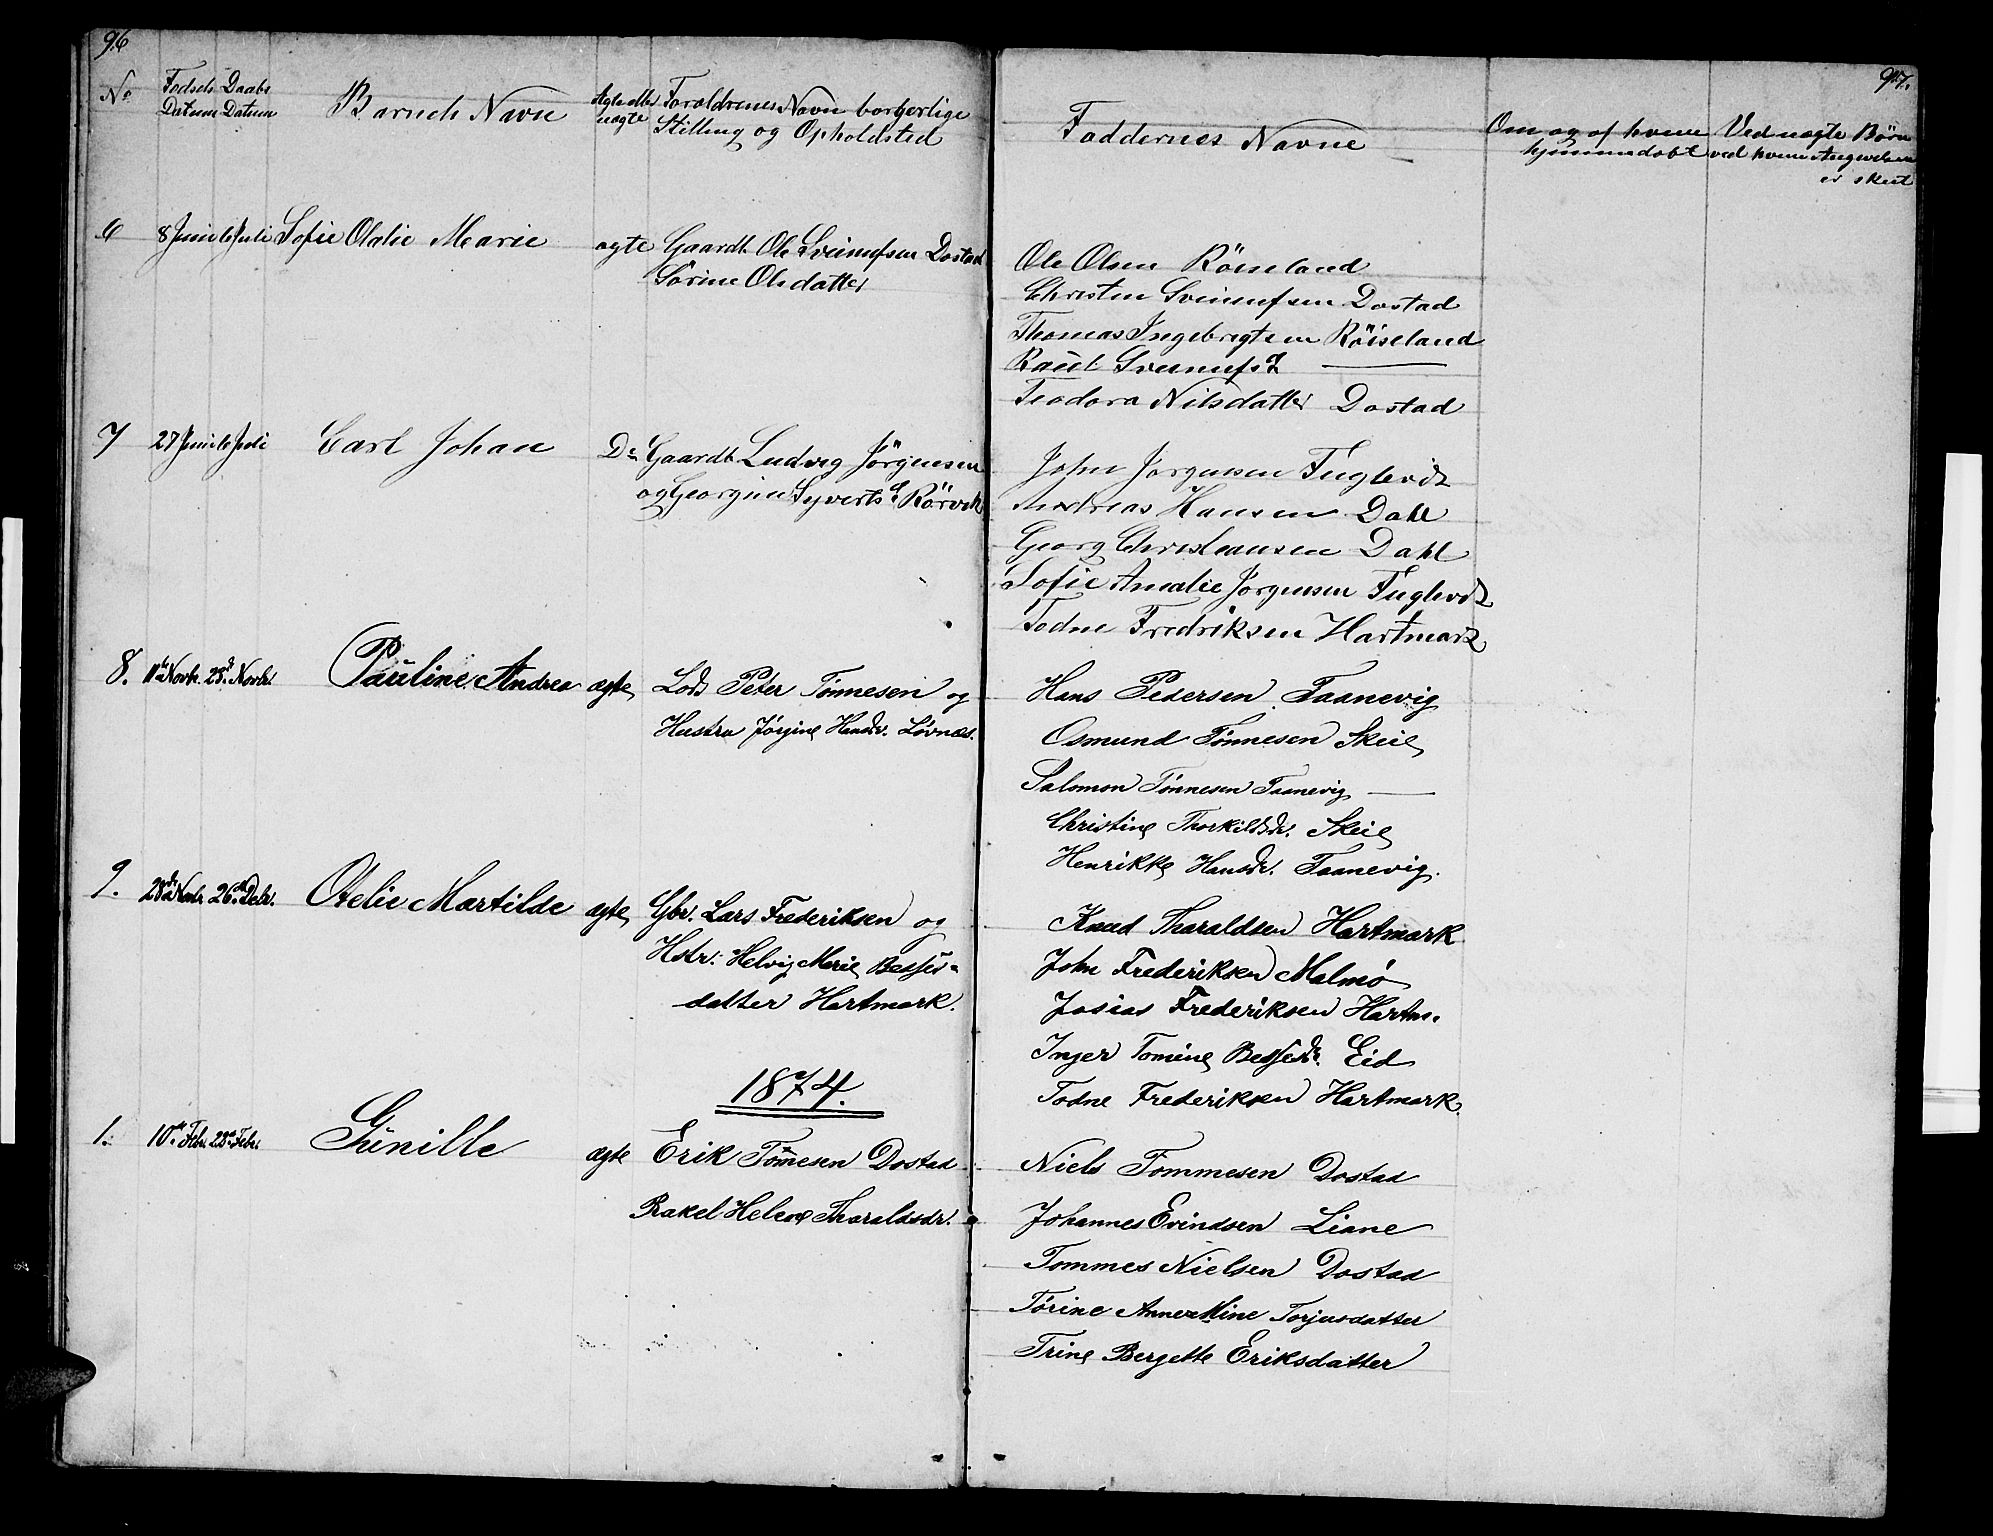 96
No
Fødsels Daabs
Datum Datum
Barnets Navn
Ægte eller
uægte
Forældrenes Navn borgerlige
Stilling og Opholdsted
6
8 Juni 6 Juli
Sofie Olalie Marie
ægte
Gaardb. Ole Sveinufsen Dostad
Sørine Olsdatter
7
27 Juni 6 Juli
Carl Johan
Do
Gaardb. Ludvig Jörgensen
og Georgine Syvertsd. Rörvik
8.
11te Novbr. 28de Novbr.
Pauline Andrea
ægte
Lods Peter Tønnesen og
Hustru Jørgine Hansdr. Løvnes.
9.
28de Novbr. 26de Debr.
Otelie Martilde
ægte
Gbr. Lars Frederiksen og
Hstr. Helvig Marie Berjes-
datter Hartmark.
1874.
1.
10de Febr. 28de Febr.
Gunille
ægte
Erik Tommesen Dostad
Rakel Helene Tharaldsdr.
97.
Faddernes Navne
Om og af hvem
hjemmedøbt
Ved uægte Børn
ved hvem Angivelsen
er skeet
Ole Olsen Röiseland
Christen Sveinufsen Dostad
Thomas Ingebrigtsen Röiseland
Raul Sveinufsd. —
Teodora Nilsdatter Dostad
John Jorgensen Fuglevik
Andreas Hansen Dahl
Georg Christiansen Dahl
Sofie Amalie Jorgensen Fuglevik
Todne Fredriksen Hartmark
Hans Pedersen Taanevig
Osmund Tønnesen Skeie
Salomon Tønnesen Taanevig —
Christine Thorkildsdr. Skeie
Henrikke Hansdr. Taanevig.
Knud Tharaldsen Hartmark
John Frederiksen Malmø
Josias Frederiksen Hartm.
Inger Tomine Berjesdr. Eid
Todne Frederiksen Hartmark.
Niels Tommesen Dostad
Johannes Evindsen Liane
Tommes Nielsen Dostad
Tørine Annexmine Torjusdatter
Trine Bergette Eriksdatter